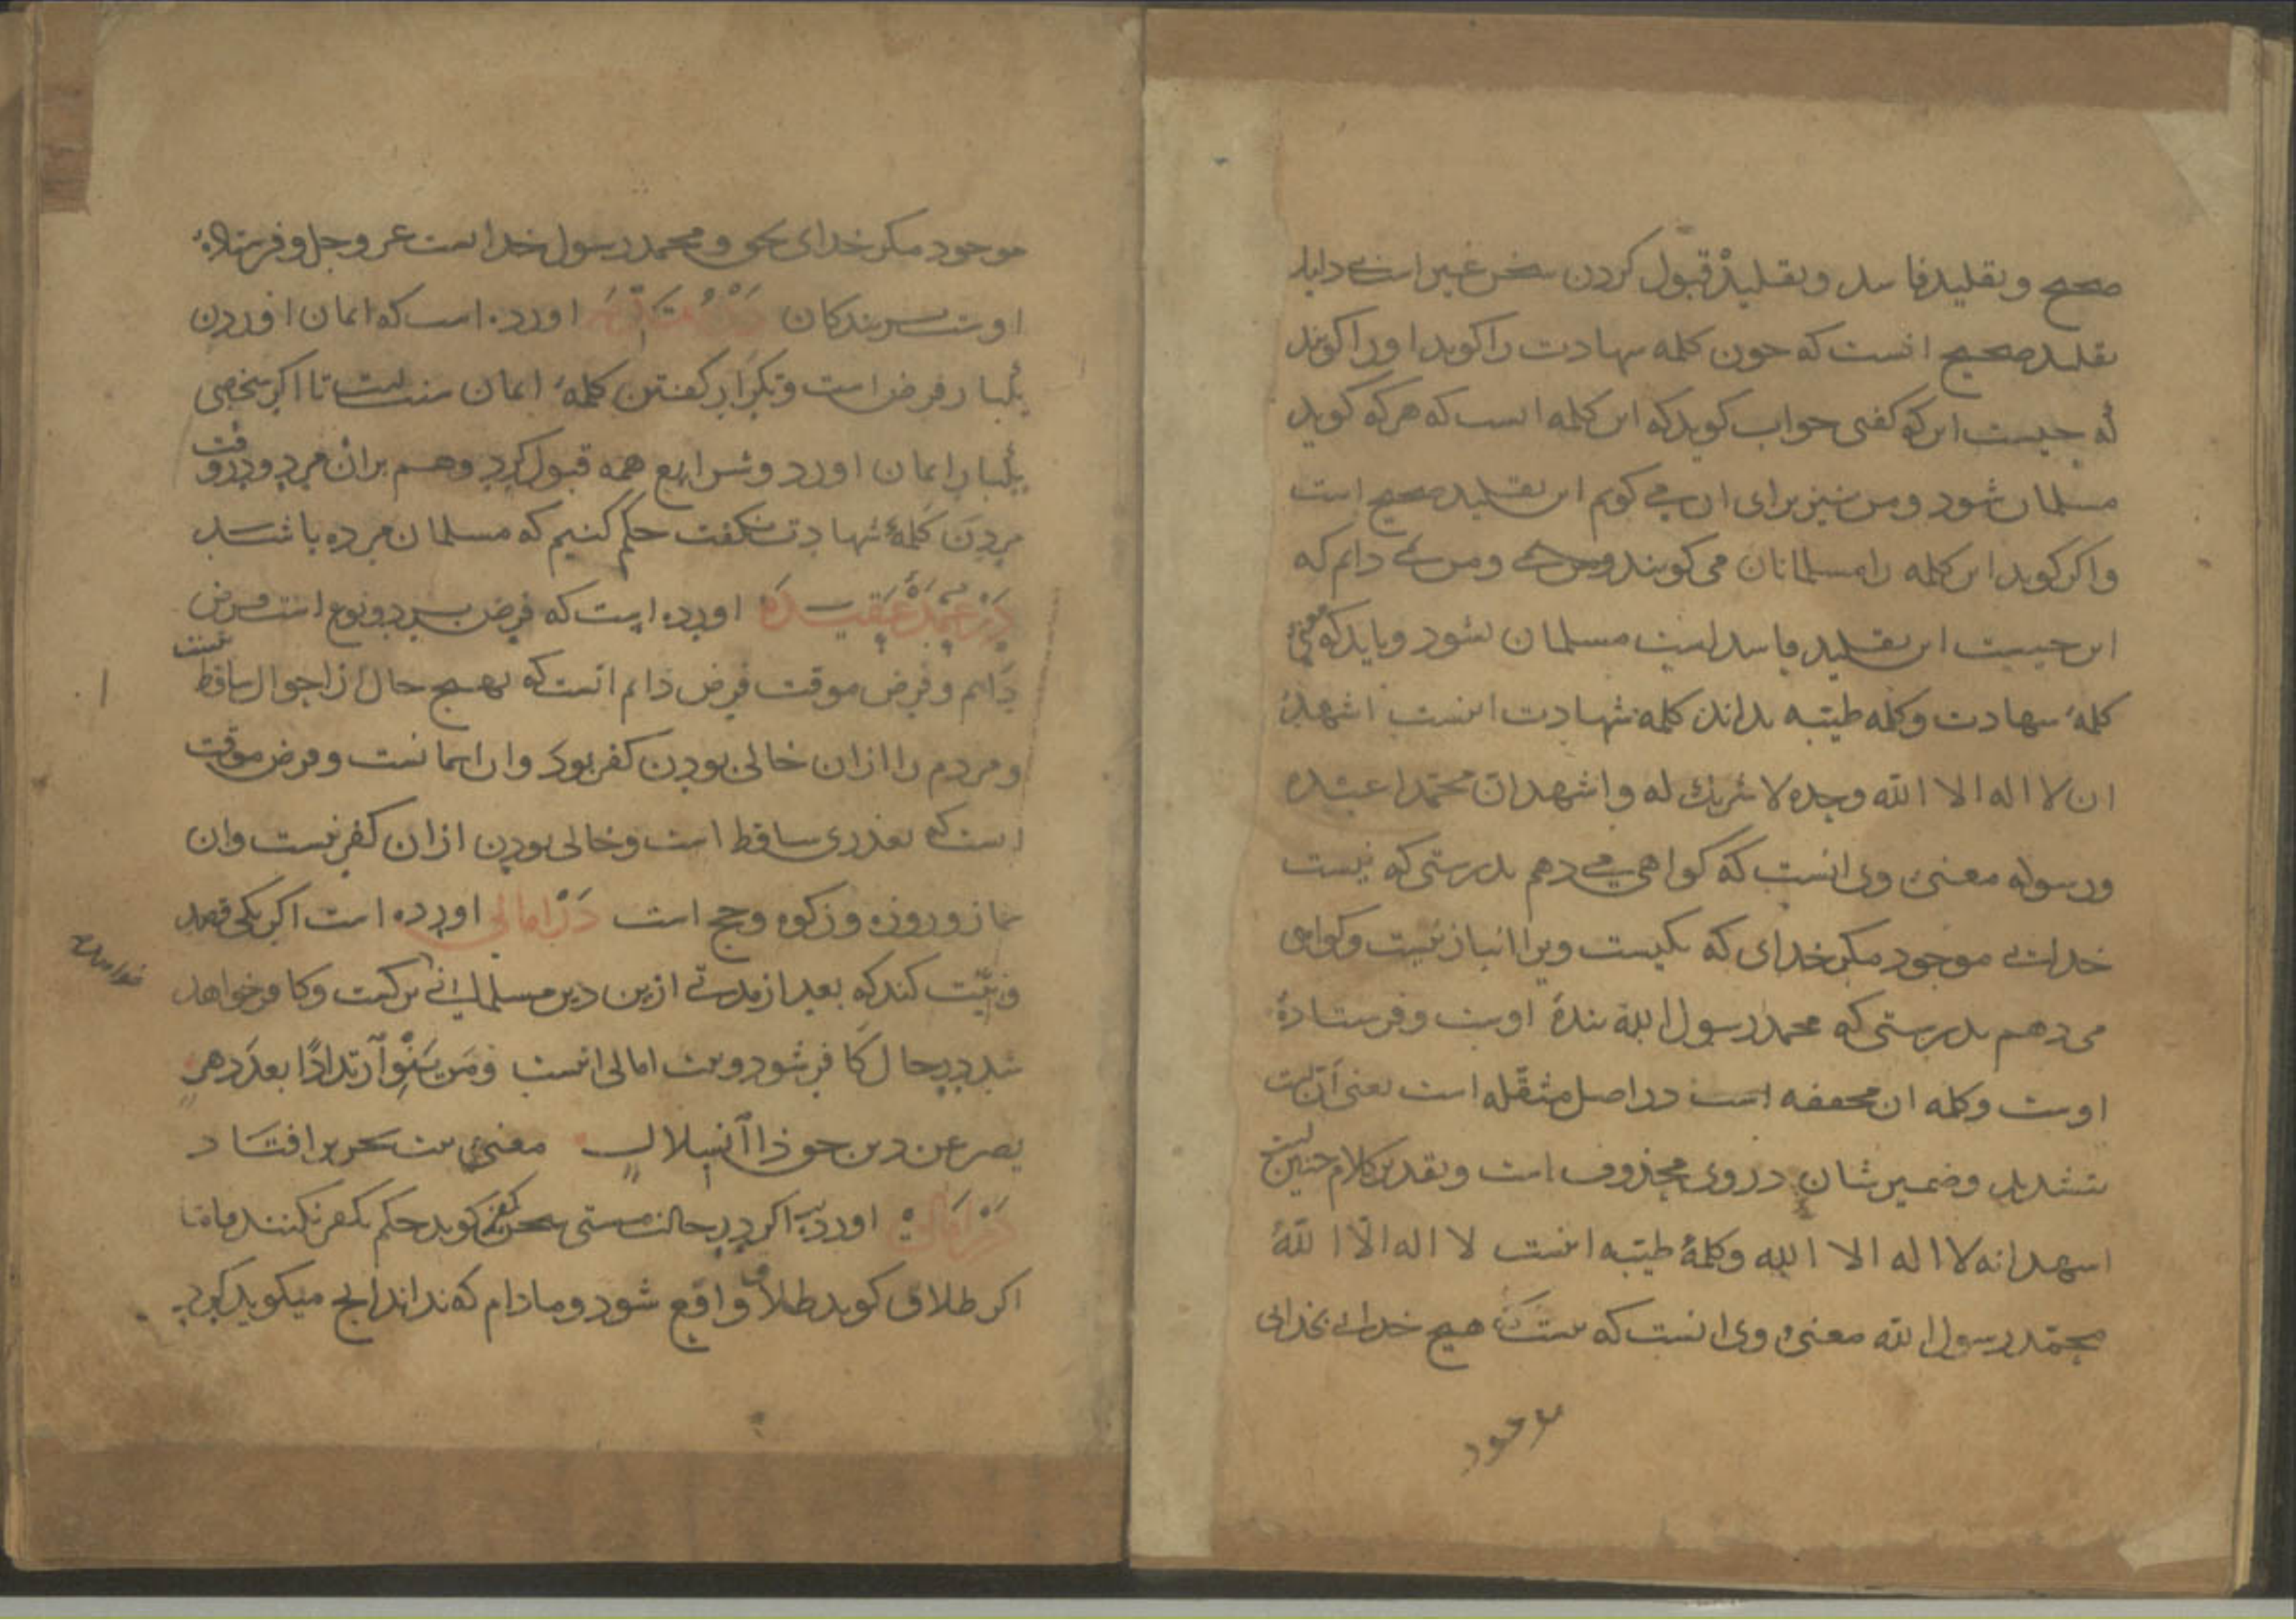 صحیح و تقلید فاسد و تقلید قبول کردن سخن غیر است بی دلیل
تقلید صحیح انست که چون کلمه شهادت را کوید او را کویند
که چیست این که کفتی جواب کوید که این کلمه ایست که هر که کوید
مسلمان شود و من نیز برای ان می کویم این تقلید صحیح است
واکر کوید این کلمه را مسلمانان می کویند و من نمی دانم که
این چیست این تقلید فاسد است مسلمان نشود و باید که معنی
کلمهٔ شهادت و کلمه طیبه بداند کلمه شهادت اینست اشهد
ان لا اله الا الله وحده لا شریک له و اشهد ان محمدا عبده
ورسوله معنیٔ وی انست که کواهی می دهم بدرستی که نیست
خدای موجود مکر خدای که یکیست ویرا انباز نیست و کواهی
می دهم بدرستی که محمد رسول الله بندهٔ اوست و فرستادهٔ
اوست و کلمه ان مخففه است در اصل مثقله است یعنی ان است
بتشدید و ضمیر شان در وی محذوف است و تقدیر کلام چنین است
اشهد انه لا اله الا الله و کلمهٔ طیبه اینست لا اله الا الله
محمد رسول الله معنیٔ وی انست که نیست هیچ خدای بخدایی
موجود
موجود مکر خدای بحق و محمد رسول خداست عز و جل و فرستادهٔ
اوست بر بندکان در اورده است که ایمان اوردن
یکبار فرض است و تکرار کفتن کلمهٔ ایمان سنت است تا اکر شخصی
یکبار ایمان اورد و شرایع همه قبول کرد و هم بران مرد و در وقت
مردن کلمهٔ شهادت نکفت حکم کنیم که مسلمان مرده باشد
در عمدهٔ عقیده اورده است که فرض بر دو نوع است فرض
دایم و فرض موقت فرض دایم انست که بهیچ حال از احوال ساقط نیست
و مردم را ازان خالی بودن کفر بود و ان ایمانست و فرض موقت
انست که بعذری ساقط است و خالی بودن ازان کفر نیست و ان
نماز و روزه و زکوه و حج است در امالی اورده است اکر یکی قصد
و نیت کند که بعد از مدتی ازین دین مسلمانی برکشت و کافر خواهد
شد در حال کافر شود و بیت امالی اینست و من ینو ارتدادا بعد دهر
یصر عن دین حق ذا انسلال معنیٔ بیت بتحریر افتاد
در امالی اورده اکر در حالت مستی سخن کفر کوید حکم بکفر نکنند فاما
اکر طلاق کوید طلاق واقع شود و مادام که نداند انچ میکوید